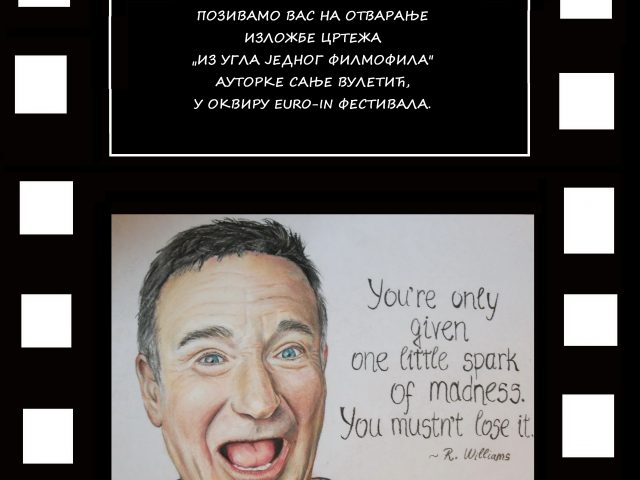 ПОЗИВАМО ВАС НА ОТВАРАЊЕ
ИЗЛОЖБЕ ЦРТЕЖА
„ИЗ УГЛА ЈЕДНОГ ФИЛМОФИЛА"
АУТОРКЕ САЊЕ ВУЛЕТИЋ,
У ОКВИРУ EURO-IN ФЕСТИВАЛА.
You're only
given
one little spark
of madness.
You mustn't lose it.
~ R. Williams